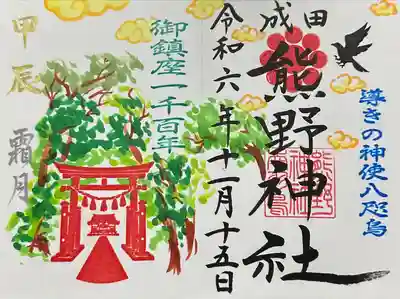 導きの神使八咫烏
成田
熊野神社
令和六年十一月十五日
御鎮座一千百年
甲辰
霜月